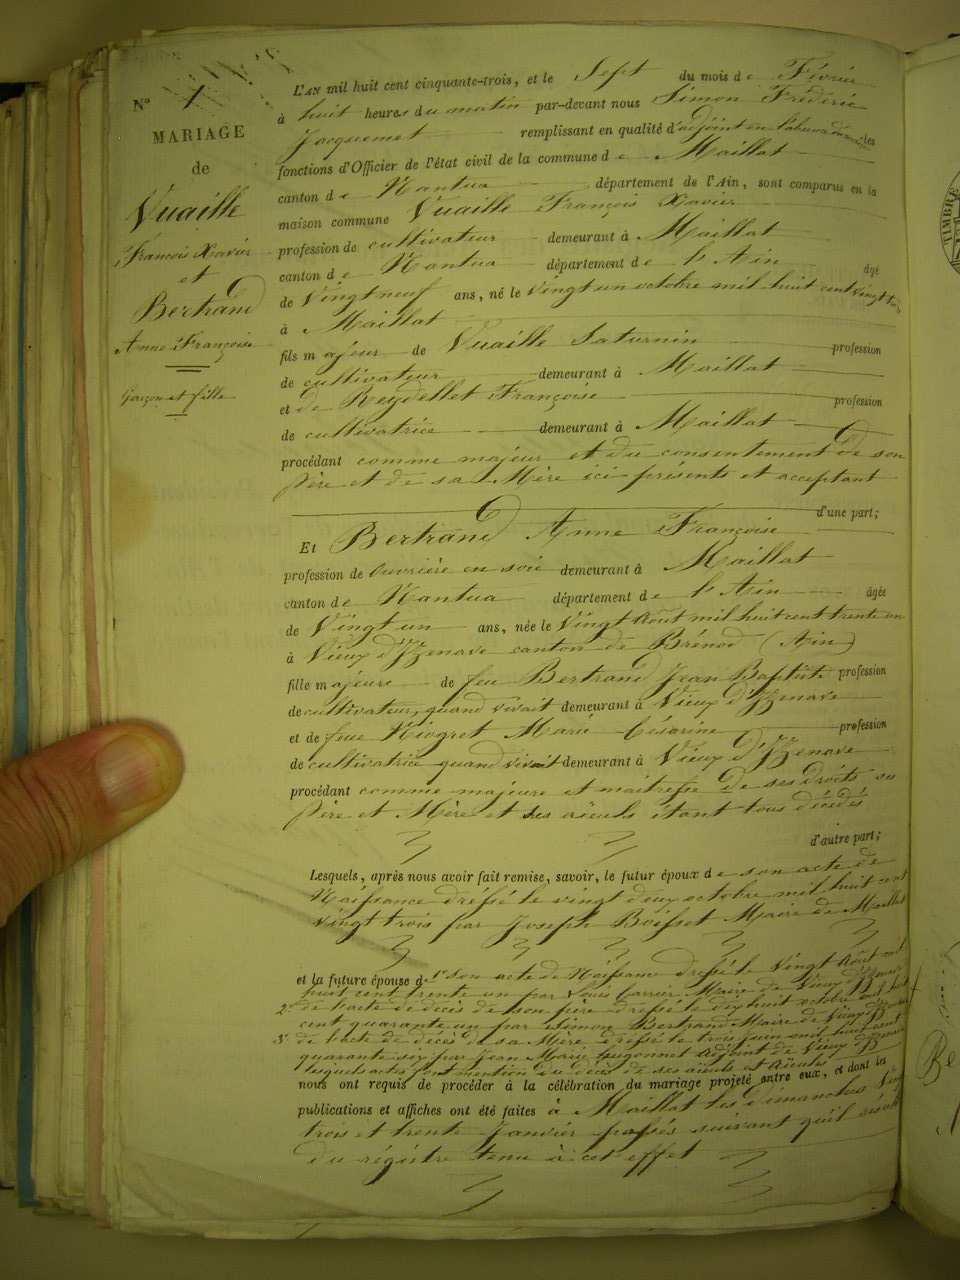 N° 1
MARIAGE
de
Vuaille
François Xavier
et
Bertrand
Anne Françoise
Garçon et fille
L'AN mil huit cent cinquante-trois, et le Sept du mois de Février
à huit heures du matin par-devant nous Simon Frédéric
Jacquemet remplissant en qualité d'adjoint en l'absence du maire les
fonctions d'Officier de l'état civil de la commune de Maillat
canton de Nantua département de l'Ain, sont comparus en la
maison commune Vuaille François Xavier
profession de cultivateur demeurant à Maillat
canton de Nantua département de l'Ain âgé
de Vingt neuf ans, né le vingt un octobre mil huit cent vingt trois
à Maillat
fils majeur de Vuaille Saturnin profession
de cultivateur demeurant à Maillat
et de Reydellet Françoise profession
de cultivatrice demeurant à Maillat
procédant comme majeur et du consentement de son
Père et de sa Mère ici présents et acceptant
d'une part;
Et Bertrand Anne Françoise
profession de Ouvrière en soie demeurant à Maillat
canton de Nantua département de l'Ain âgée
de Vingt un ans, née le Vingt Août mil huit cent trente un
à Vieux d'Izenave canton de Brénod (Ain)
fille majeure de feu Bertrand Jean Baptiste profession
de cultivateur, quand vivait demeurant à Vieux d'Izenave
et de feue Niogret Marie Césarine profession
de cultivatrice quand vivait demeurant à Vieux d'Izenave
procédant comme majeure et maitresse de ses droits ses
Père et Mère et ses aïeuls étant tous décédés
d'autre part;
Lesquels, après nous avoir fait remise, savoir, le futur époux de son acte de
Naissance dréssé le vingt deux octobre mil huit cent
vingt trois par Joseph Boisset Maire de Maillat
et la future épouse de 1° son acte de Naissance dressé le Vingt Août mil
huit cent trente un par Louis Carrier Maire de Vieux d'Izenave
2° de l'acte de décès de son père dréssé le dix huit octobre mil huit
cent quarante un par Simon Bertrand Maire de Vieux d'Iz
3° de l'acte de décès de sa Mère dréssé le trois juin mil huit cent
quarante six par Jean Marie Hugonnet Adjoint de Vieux d'Iz
lesquels actes font mention du décès de ses aïeuls et Aïeules
nous ont requis de procéder à la célébration du mariage projeté entre eux, et dont les
publications et affiches ont été faites à Maillat les dimanches Vingt
trois et trente Janvier passés suivant qu'il résulte
du régistre tenu à cet effet
TIMBRE